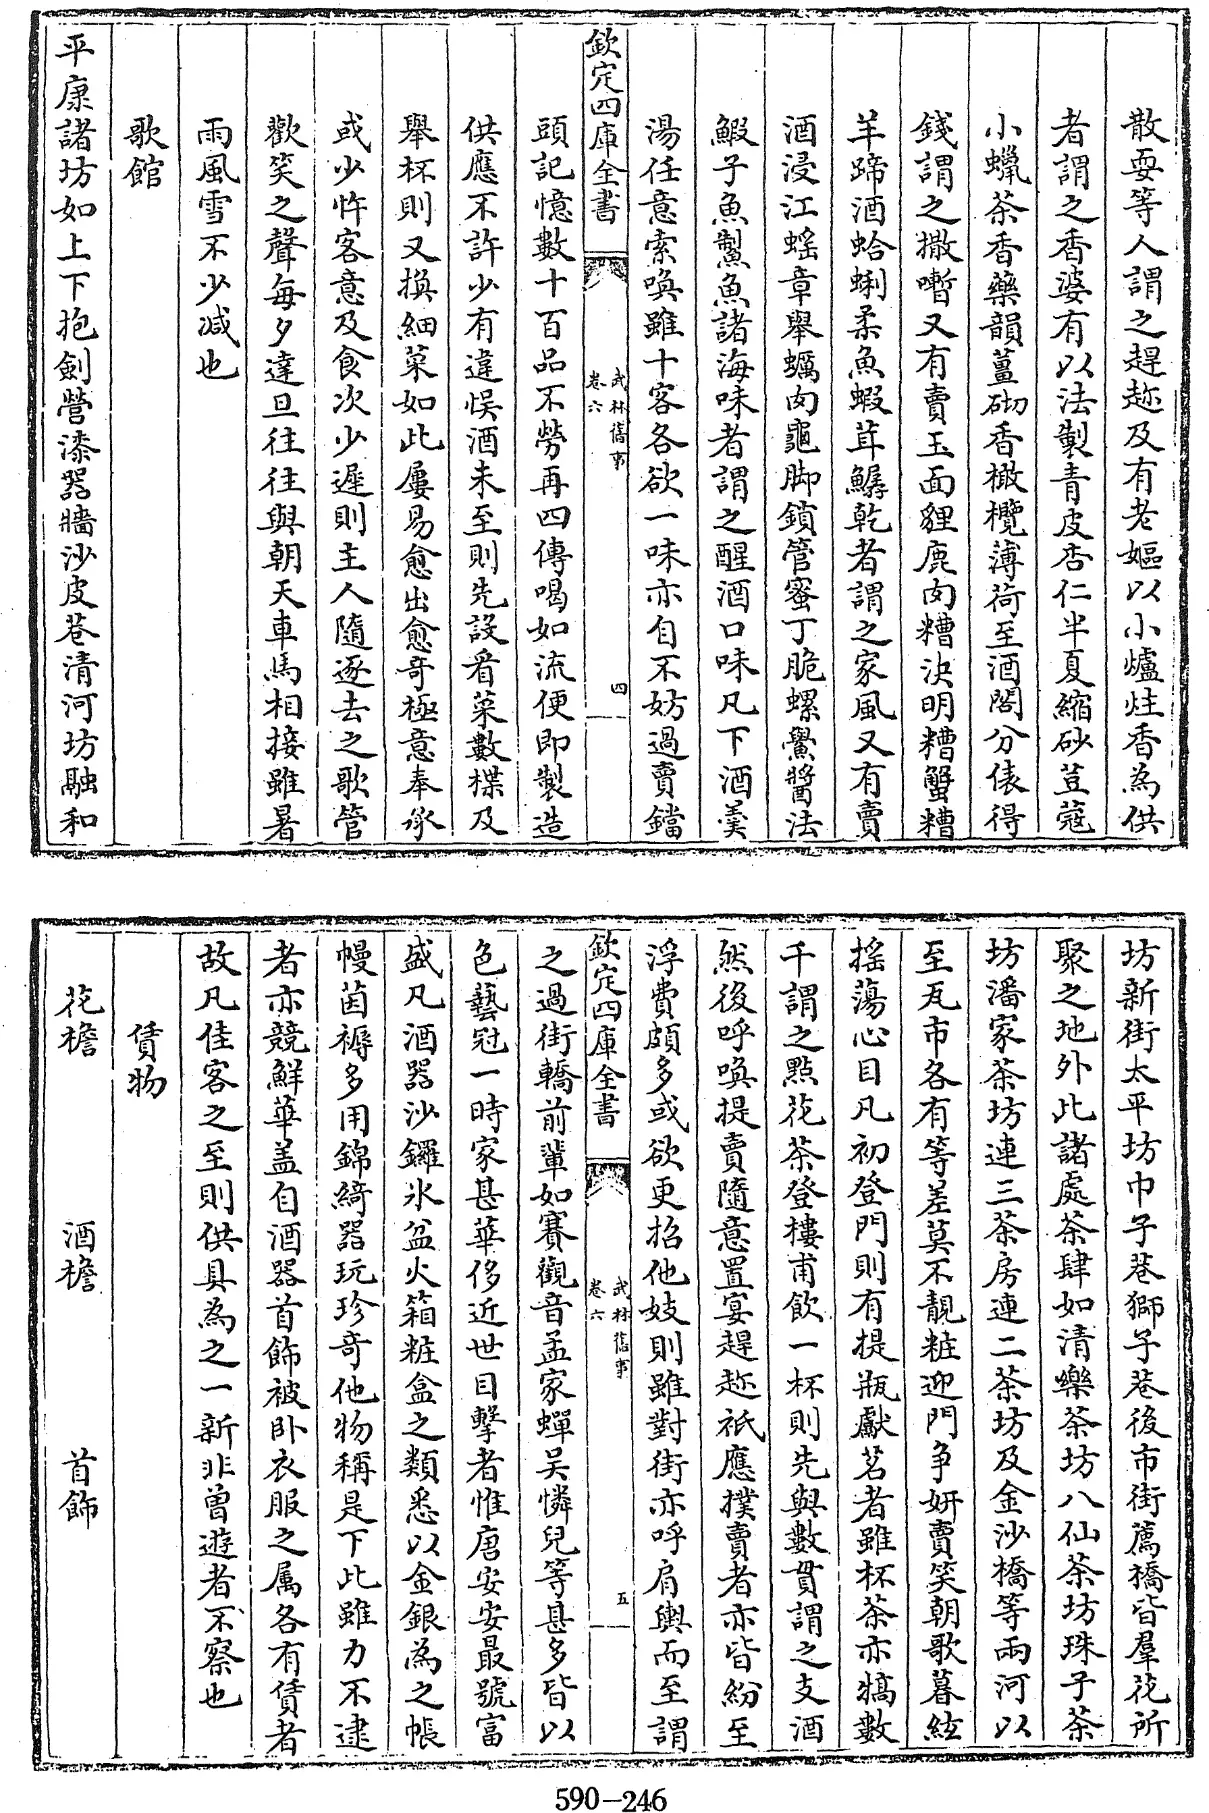 散耍等人謂之趕趂及有老嫗以小爐炷香為供
者謂之香婆有以法製青皮杏仁半夏縮砂荳蔻
小蠟茶香藥韻薑砌香橄欖薄荷至酒閣分俵得
錢謂之撒㬱又有賣玉面貍鹿肉糟決明糟蟹糟
羊蹄酒蛤蜊柔魚蝦茸鱘乾者謂之家風又有賣
酒浸江蝫章舉蠣肉龜脚鎖管蜜丁脆螺鱟醬法
鰕子魚鮆魚諸海味者謂之醒酒口味凡下酒羮
湯任意索喚雖十客各欲一味亦自不妨過賣鐺
欽定四庫全書
武林舊事
卷六
四
頭記憶數十百品不勞再四傳喝如流便即製造
供應不許少有違悮酒未至則先設看菜數楪及
舉杯則又換細菜如此屢易愈出愈奇極意奉承
或少忤客意及食次少遲則主人隨逐去之歌管
歡笑之聲每夕達旦往往與朝天車馬相接雖暑
雨風雪不少減也
歌館
平康諸坊如上下抱劍營漆器牆沙皮巷清河坊融和
坊新街太平坊巾子巷獅子巷後市街薦橋皆羣花所
聚之地外此諸處茶肆如清樂茶坊八仙茶坊珠子茶
坊潘家茶坊連三茶房連二茶坊及金沙橋等兩河以
至瓦市各有等差莫不靚粧迎門争妍賣笑朝歌暮絃
搖蕩心目凡初登門則有提瓶獻茗者雖杯茶亦犒數
千謂之點花茶登樓甫飲一杯則先與數貫謂之支酒
然後呼喚提賣隨意置宴趕趂祇應撲賣者亦皆紛至
浮費頗多或欲更招他妓則雖對街亦呼肩輿而至謂
欽定四庫全書
武林舊事
卷六
五
之過街轎前輩如賽觀音孟家蟬吴憐兒等甚多皆以
色藝冠一時家甚華侈近世目擊者惟唐安安最號富
盛凡酒器沙鑼氷盆火箱粧盒之類悉以金銀為之帳
幔茵褥多用錦綺器玩珍奇他物稱是下此雖力不逮
者亦競鮮華盖自酒器首飾被卧衣服之属各有賃者
故凡佳客之至則供具為之一新非曾遊者不察也
賃物
花檐 酒檐 首飾
590-246